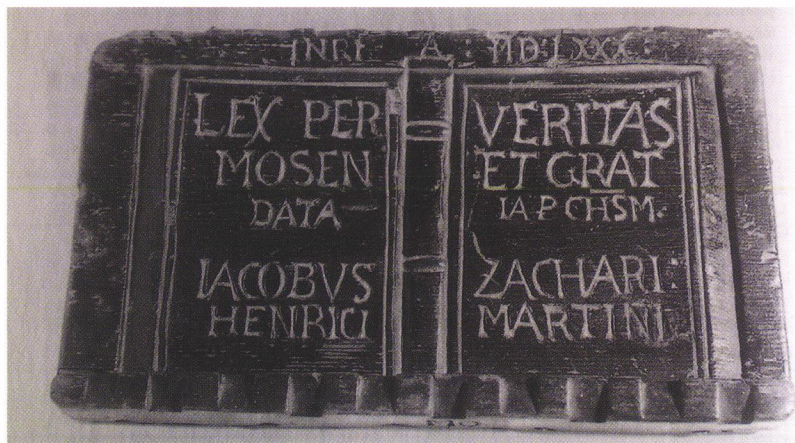 INRI A : MD:LXXX:
LEX PER
MOSEN
DATA
IACOBVS
HENRICI
VERITAS
ET GRAT
IA P CHSM.
ZACHARI:
MARTINI